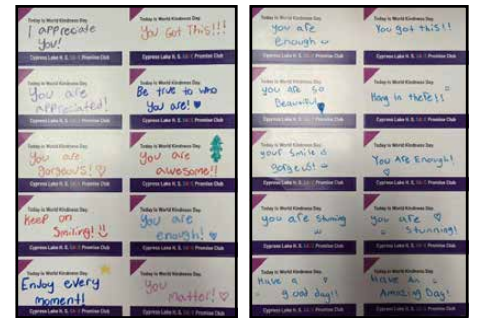 Today is World Kindness Day.
I appreciate
you!
Cypress Lake H. S. Promise Club
Today is World Kindness Day.
You Got This!!!
Cypress Lake H. S. Promise Club
Today is World Kindness Day.
You are
appreciated!
Cypress Lake H. S. Promise Club
Today is World Kindness Day.
Be true to who
you are!
Cypress Lake H. S. Promise Club
Today is World Kindness Day.
You are
gorgeous!
Cypress Lake H. S. Promise Club
Today is World Kindness Day.
You are
awesome!!
Cypress Lake H. S. Promise Club
Today is World Kindness Day.
Keep on
Smiling!
Cypress Lake H. S. Promise Club
Today is World Kindness Day.
You are
enough!
Cypress Lake H. S. Promise Club
Today is World Kindness Day.
Enjoy every
moment!
Cypress Lake H. S. Promise Club
Today is World Kindness Day.
You
Matter!
Cypress Lake H. S. Promise Club
Today is World Kindness Day.
you are
enough
Cypress Lake H. S. Promise Club
Today is World Kindness Day.
You got this!!
Cypress Lake H. S. Promise Club
Today is World Kindness Day.
you are so
Beautiful
Cypress Lake H. S. Promise Club
Today is World Kindness Day.
Hang in there!!
Cypress Lake H. S. Promise Club
Today is World Kindness Day.
your smile is
gorgeus!
Cypress Lake H. S. Promise Club
Today is World Kindness Day.
You Are Enough!
Cypress Lake H. S. Promise Club
Today is World Kindness Day.
you are stuning
Cypress Lake H. S. Promise Club
Today is World Kindness Day.
you are
Stunning!
Cypress Lake H. S. Promise Club
Today is World Kindness Day.
Have a
good day!!
Cypress Lake H. S. Promise Club
Today is World Kindness Day.
Have An
Amazing Day!
Cypress Lake H. S. Promise Club